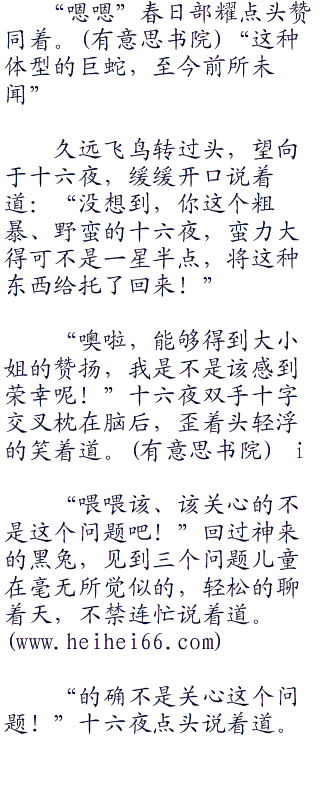 “嗯嗯”春日部耀点头赞
同着。(有意思书院)“这种
体型的巨蛇，至今前所未
闻”
久远飞鸟转过头，望向
于十六夜，缓缓开口说着
道：“没想到，你这个粗
暴、野蛮的十六夜，蛮力大
得可不是一星半点，将这种
东西给托了回来！”
“噢啦，能够得到大小
姐的赞扬，我是不是该感到
荣幸呢！”十六夜双手十字
交叉枕在脑后，歪着头轻浮
的笑着道。(有意思书院) i
“喂喂该、该关心的不
是这个问题吧！”回过神来
的黑兔，见到三个问题儿童
在毫无所觉似的，轻松的聊
着天，不禁连忙说着道。
(www.heihei66.com)
“的确不是关心这个问
题！”十六夜点头说着道。